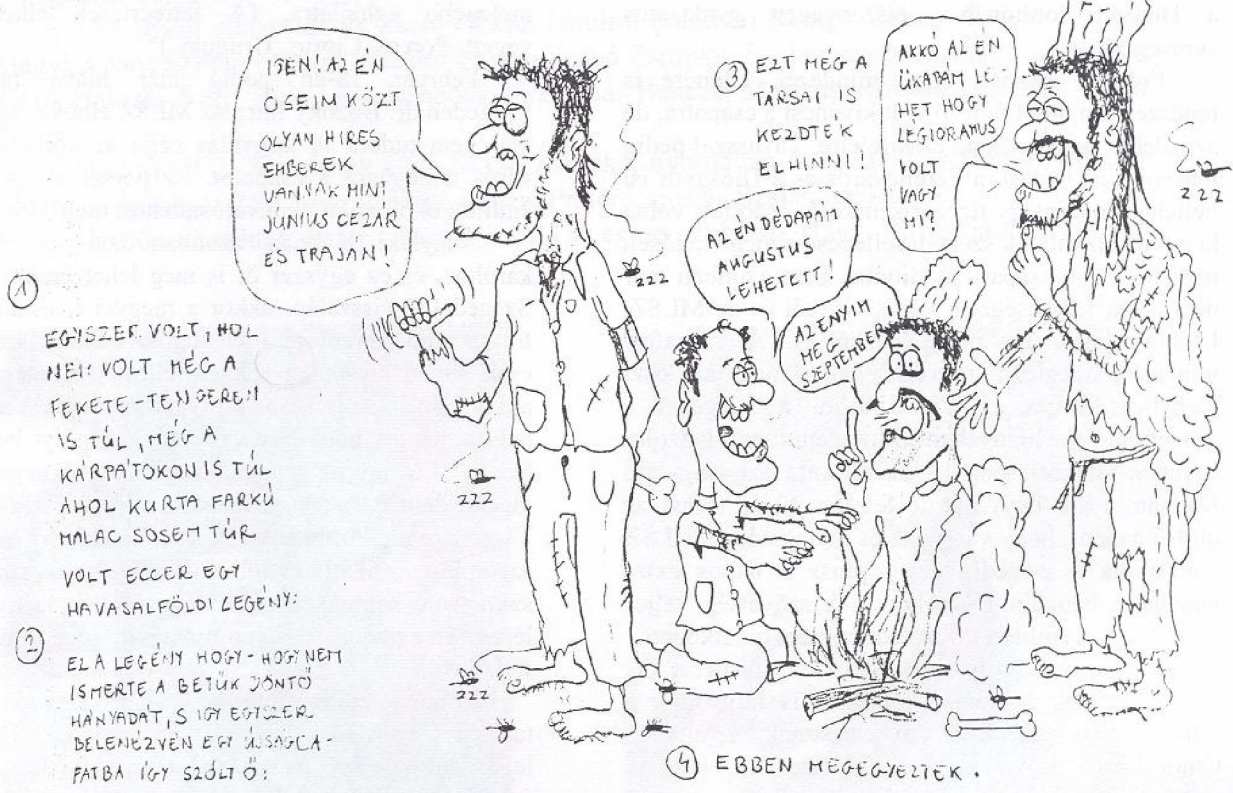 ①
EGYSZER VOLT, HOL
NEM VOLT MÉG A
FEKETE-TENGEREN
IS TÚL, MÉG A
KÁRPÁTOKON IS TÚL
AHOL KURTA FARKÚ
MALAC SOSEM TÚR
VOLT ECCER EGY
HAVASALFÖLDI LEGÉNY:
②
EL A LEGÉNY HOGY-HOGYNEM
ISMERTE A BETŰK DÖNTŐ
HÁNYADÁT, S IGY EGYSZER
BELENÉZVÉN EGY ÚJSÁGCA-
FATBA ÍGY SZÓLT Ő:
IGEN! AZ ÉN
ŐSEIM KÖZT
OLYAN HIRES
EMBEREK
VANNAK MINT
JÚNIUS CÉZÁR
ÉS TRAJÁN!
③ EZT MÉG A
TÁRSAI IS
KEZDTÉK
ELHINNI!
AZ ÉN DÉDAPÁM
AUGUSTUS
LEHETETT!
AZ ENYIM
MEG
SZEPTEMBER!
AKKÓ AZ ÉN
ÜKAPÁM LE-
HET HOGY
LEGIORAMUS
VOLT
VAGY
MI?
ZZZ
ZZZ
ZZZ
ZZZ
④ EBBEN MEGEGYEZTEK.